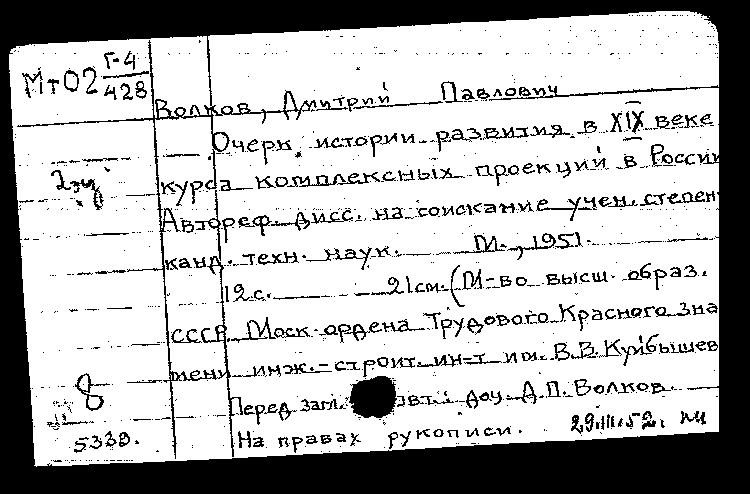 Мт02 Г-4/428
Волков, Дмитрий Павлович
Очерк истории развития в XIX веке
2 эк. курса комплексных проекций в России
Автореф. дисс. на соискание учен. степен
канд. техн. наук. М., 1951.
12 с. 21 см. (М-во высш. образ.
СССР. Моск. ордена Трудового Красного Зна
мени инж.-строит. ин-т им. В.В. Куйбышев
8 Перед загл. авт.: доц. Д.П. Волков.
5338. На правах рукописи. 29.III.52.